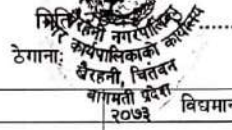 मिति ..........
खैरहनी नगरपालिका
ठेगाना:
कार्यपालिकाको कार्यालय
खैरहनी, चितवन
बागमती प्रदेश
२०७३
विद्यमान